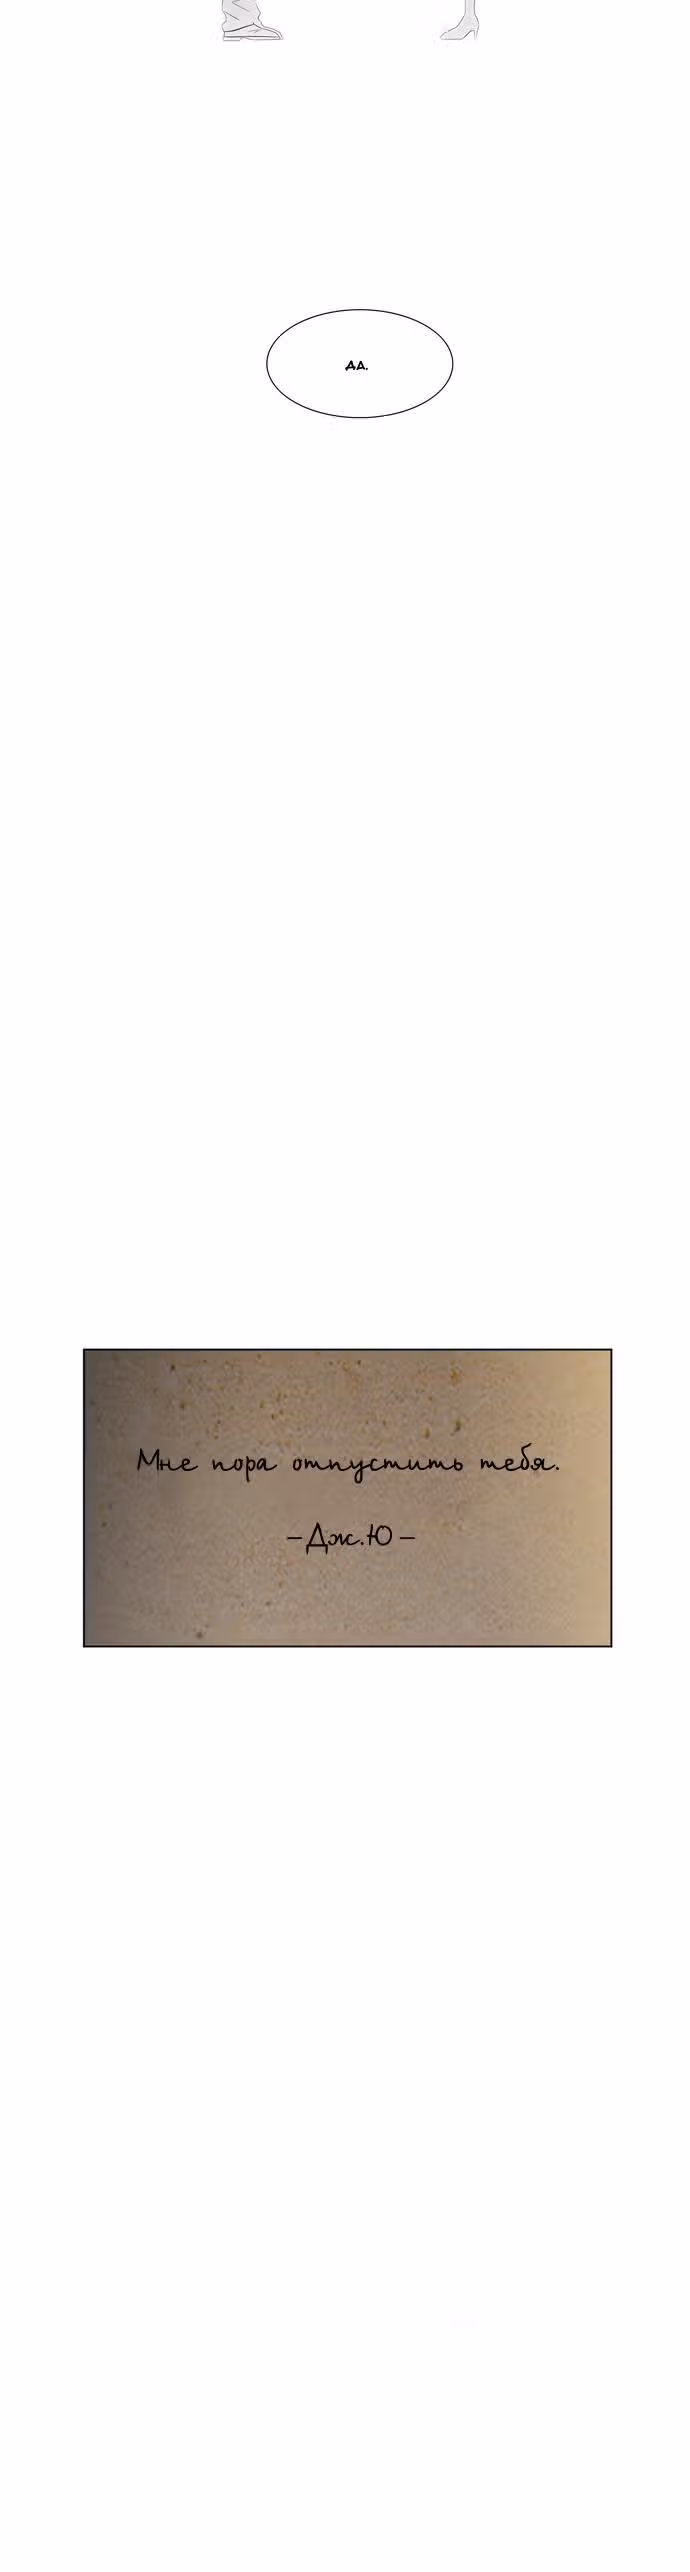 ДА.
Мне пора отпустить тебя.
– Дж.Ю –